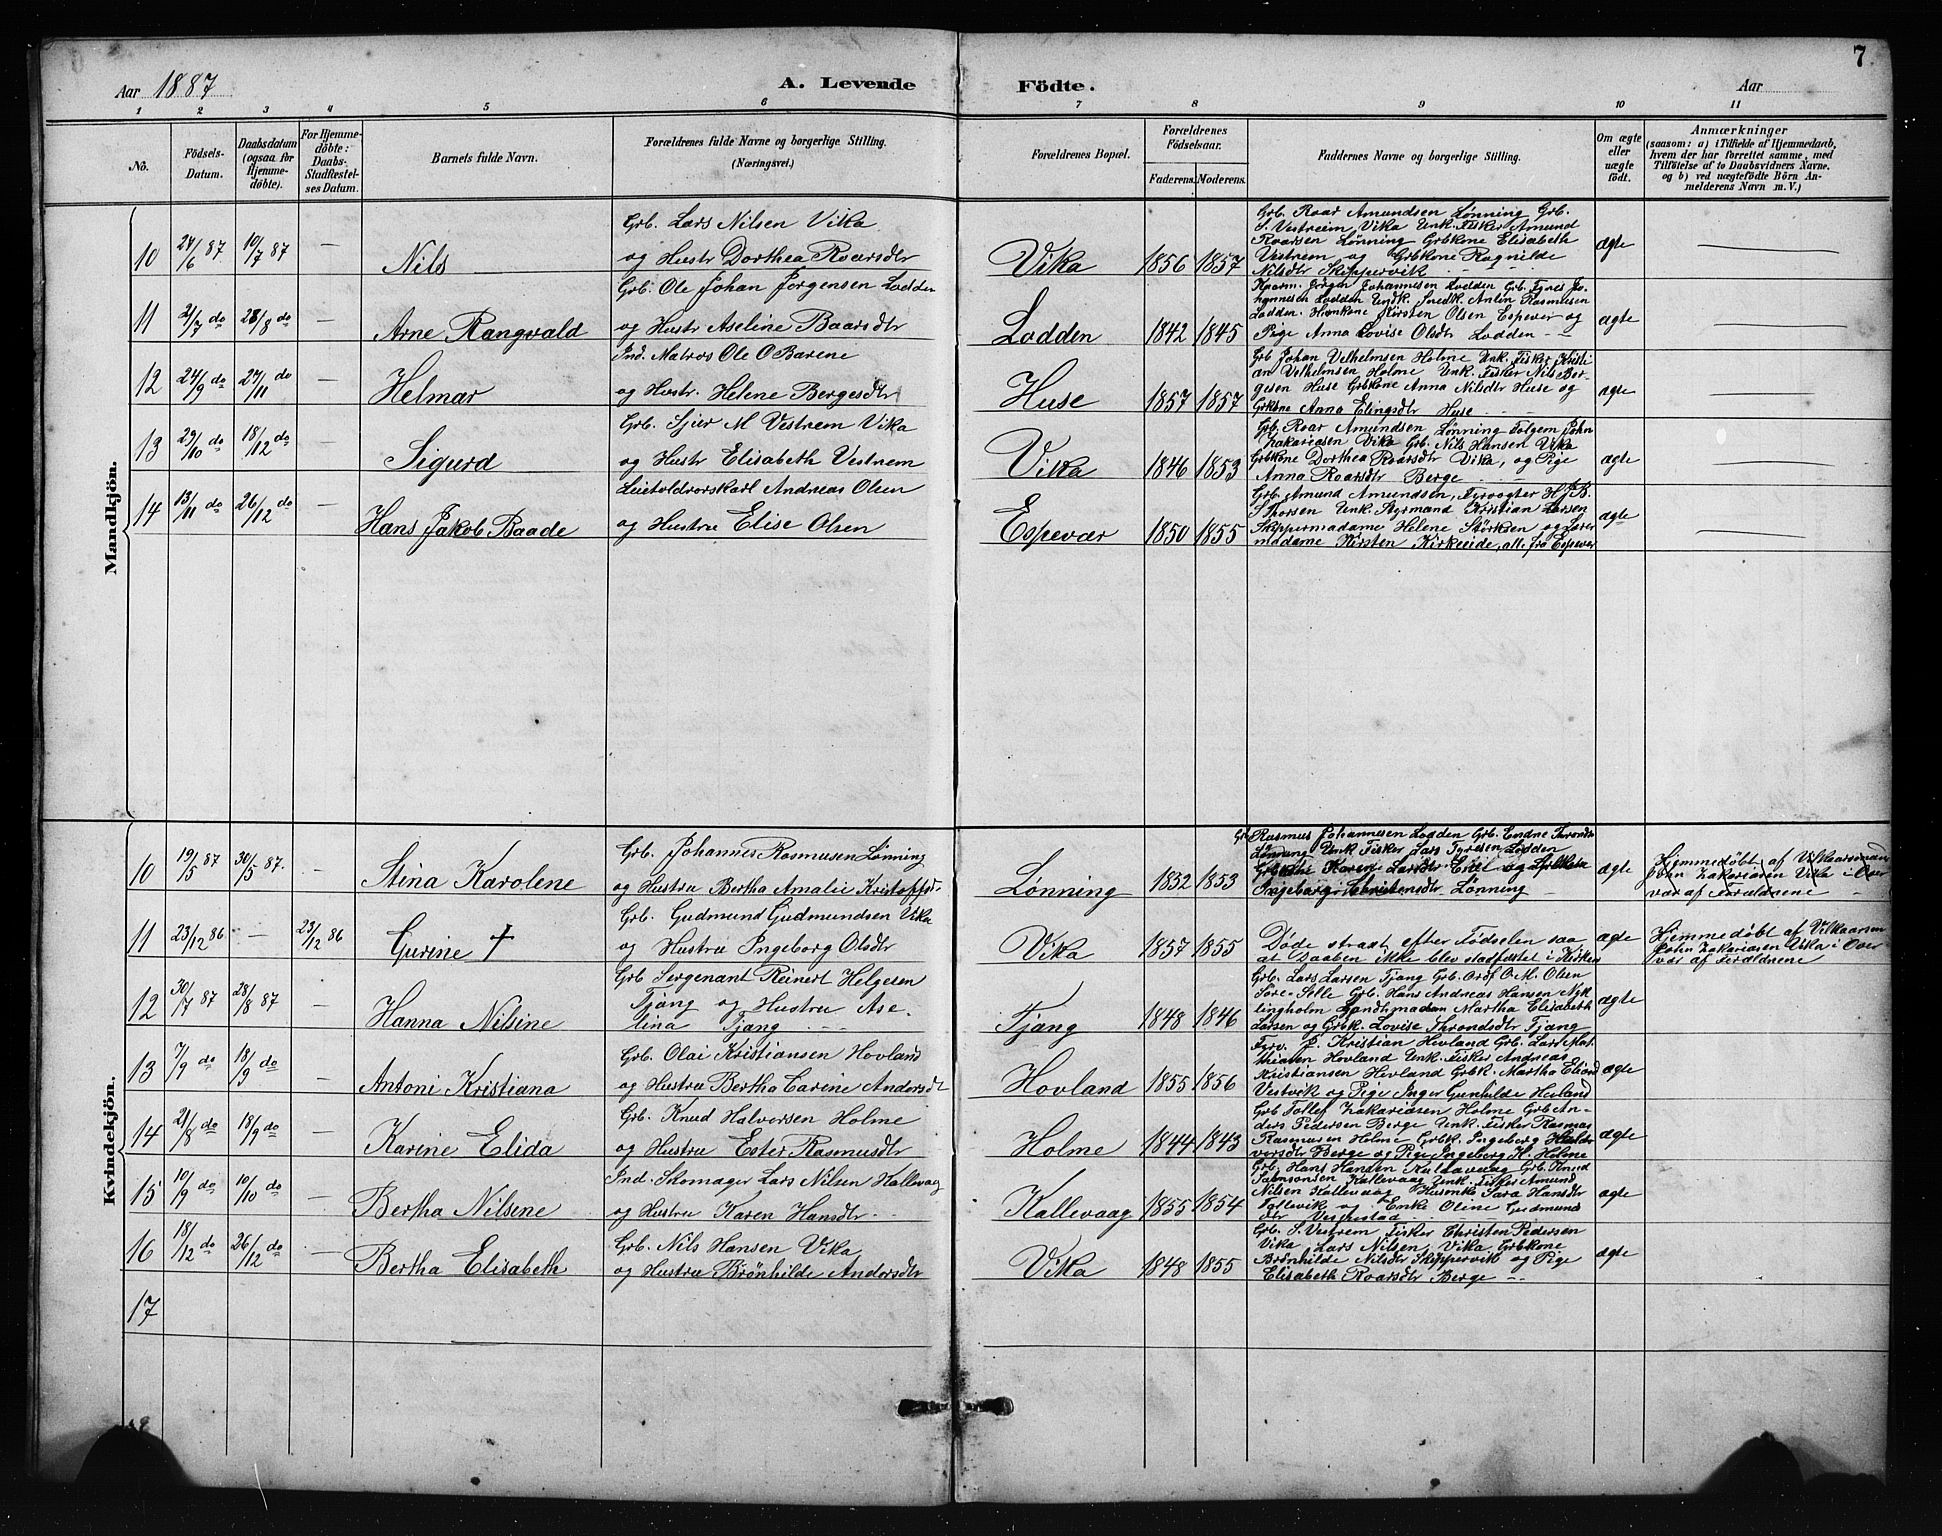 7.
Aar 1887
A. Levende Födte.
Aar
1 2 3 4 5 6 7 8 9 10 11
No.
Födsels-
Datum.
Daabsdatum
(ogsaa for
Hjemme-
döbte).
For Hjemme-
döbte:
Daabs-
Stadfæstel-
ses Datum.
Barnets fulde Navn.
Forældrenes fulde Navne og borgerlige Stilling.
(Næringsvei.)
Forældrenes Bopæl.
Forældrenes
Födselsaar.
Faderens. Moderens.
Faddernes Navne og borgerlige Stilling.
Om ægte
eller
uægte
födt.
Anmærkninger
(saasom: a) i Tilfælde af Hjemmedaab,
hvem der har forrettet samme, med
Tilföielse af to Daabsvidners Navne.
og b) ved uægtefödte Börn An-
melderens Navn m. V.)
Mandkjön.
10 24/6 87. 10/7 87 — Nils
Grb. Lars Nilsen Vika
og Hustr Dorthea Roarsdtr
Vika 1856 1857
Grb. Roar Amundsen Lønning Grb.
S. Vestreim, Vika Unk. Fisker Amund
Roarsen Lønning Grbkone Elisabeth
Vestrem og Grbkone Ragnilde
Nilsdtr Skippervik
ægte —
11 21/7 do 28/8 do — Arne Rangvald
Grb. Ole Johan Jørgensen Lodden
og Hustr Aseline Baarsdtr
Lodden 1842 1845
Kaarm. Jørgen Johannesen Lodden Grb. Tyres Jo-
hannesen Lodden Undk. Snedk. Antin Rasmusen
Lodden. Hmkone Kirsten Olsen Espever og
Pige Anna Lovise Olsdtr Lodden
ægte —
12 24/9 do 27/11 do — Helmar
Ind. Matros Ole O Barene
og Hustr. Helene Bergesdtr
Huse 1857 1857
Grb Johan Velhelmsen Holme Unk. Fisker Kristi-
an Velhelmsen Holme Unk. Fisker Nils Ber-
gesen Huse Grbkone Anna Nilsdtr Huse og
Grkone Anna Elingsdtr Huse
ægte —
13 29/10 do 18/12 do — Sigurd
Grb. Sjur M Vestrem Vika
og Hustr Elisabeth Vestrem
Vika 1846 1853
Grb. Roar Amundsen Lønning Folgem John
Zakariasen Vika Grb. Nils Hansen Vika
Grbkone Dorthea Roarsdtr Vika, og Pige
Anna Roarsdtr Berge
ægte —
14 13/11 do 26/12 do — Hans Jakob Baade
Andreas Olsen
og Hustru Elise Olsen
Espevær 1850 1855
Grb. Amund Amundsen, Fyrvogter H.J.B.
Thorsen Unk. Styrmand Kristian Larsen
Skippermadame Helene Størksen og Lærer
madame Kirsten Kirkeeide, all. fra Espever
ægte —
Kvindekjön.
10 19/5 87 30/5 87. — Stina Karolene
Grb. Johannes Rasmusen Lønning
og Hustru Bertha Amalie Kristoffsd.
Lønning 1852 1853
Grb Rasmus Johannesen Lodden Grb. Endre Thronds
Lønning Unk Fisker Lars Tyresen Lodden
Grbkone Karen Larsdtr Eriel og
Ingeborg Lønning
ægte
Hjemmedøbt af Vilkaarsmand
John Zakariasen Vika i Over
vær af Forældrene
11 23/12 86 — 23/12 86 Gurine †
Grb. Gudmund Gudmundsen Vika
og Hustru Ingeborg Olsdtr
Vika 1857 1855
Døde strast efter Fødselen saa
at Daaben ikke blev stadfæstet i Kirken
ægte
Hjemmedøbt af Vilkaarsm
John Zakariasen Vika i Over
vær af Forældrene
12 30/7 87 28/8 87 — Hanna Nilsine
Grb Sergenant Reinert Helgesen
Tjang og Hustru Ase-
lina Tjang
Tjang 1848 1846
Grb. Lars Larsen Tjang Grb. Ordf. O. M. Olsen
Søre-Selle Grb. Hans Andreas Hansen Nyk
lingholm Landhmadam Martha Elisabeth
Larsen og Grbk. Lovise Throndsdtr Tjang
ægte
13 7/9 do 18/9 do — Antoni Kristiana
Grb. Olai Kristiansen Hovland
og Hustru Bertha Carine Andersdt
Hovland 1855 1856
Fyrv. P. Kristian Hovland Grb. Lars Mat-
thiasen Hovland Unk. Fisker Andreas
Kristiansen Hovland Grbk. Martha Eliasd
Vestvik og Pige Inger Gunhilde Hovland
ægte
14 21/8 do 18/9 do Karine Elida
Grb. Knud Halvorsen Holme
og Hustru Ester Rasmusdtr
Holme 1844 1843
Grb Tollef Zakariasen Holme Grb An-
ders Pedersen Berge Unk. Fisker Rasmus
Rasmusen Holme Grbk. Ingeborg Hal-
vorsdtr Berge og Pige Ingeborg K. Holme
ægte
15 10/9 do 10/10 do — Bertha Nilsene
Ind. Skomager Lars Nilsen Kallevaag
og Hustru Karen Hansdtr
Kallevaag 1855 1854
Grb. Hans Hansen Kallavaag Grb. Knud
Samsonsen Kallevaag Unk. Fisker Amund
Nilsen Kallevaag Husmk. Sara Hansdtr
Tollevik og Enke Oline Gudmunds
dtr
ægte
16 18/12 do 26/12 do — Bertha Elisabeth
Grb. Nils Hansen Vika
og Hustru Brønhilde Andersdtr
Vika 1848 1855
Grb. S. Vestrem Fisker Christen Pedersen
Vika Lars Nilsen, Vika Grbkone
Brønhilde Nilsdtr Skippervik og Pige
Elisabeth Roarsdtr Berge
ægte
17